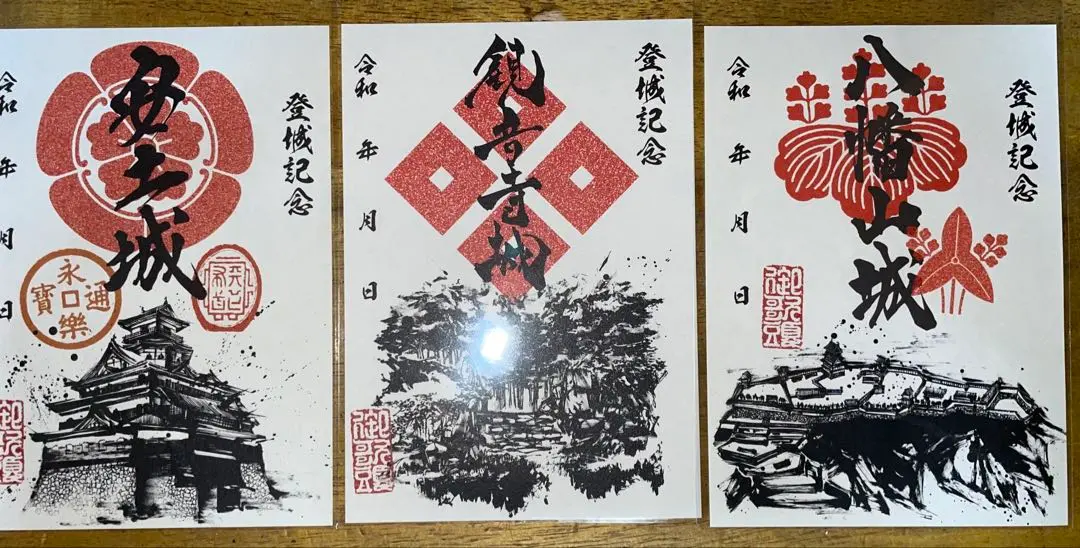 登城記念
安土城
令和 年 月 日
永樂通寶
登城記念
観音寺城
令和 年 月 日
登城記念
八幡山城
令和 年 月 日